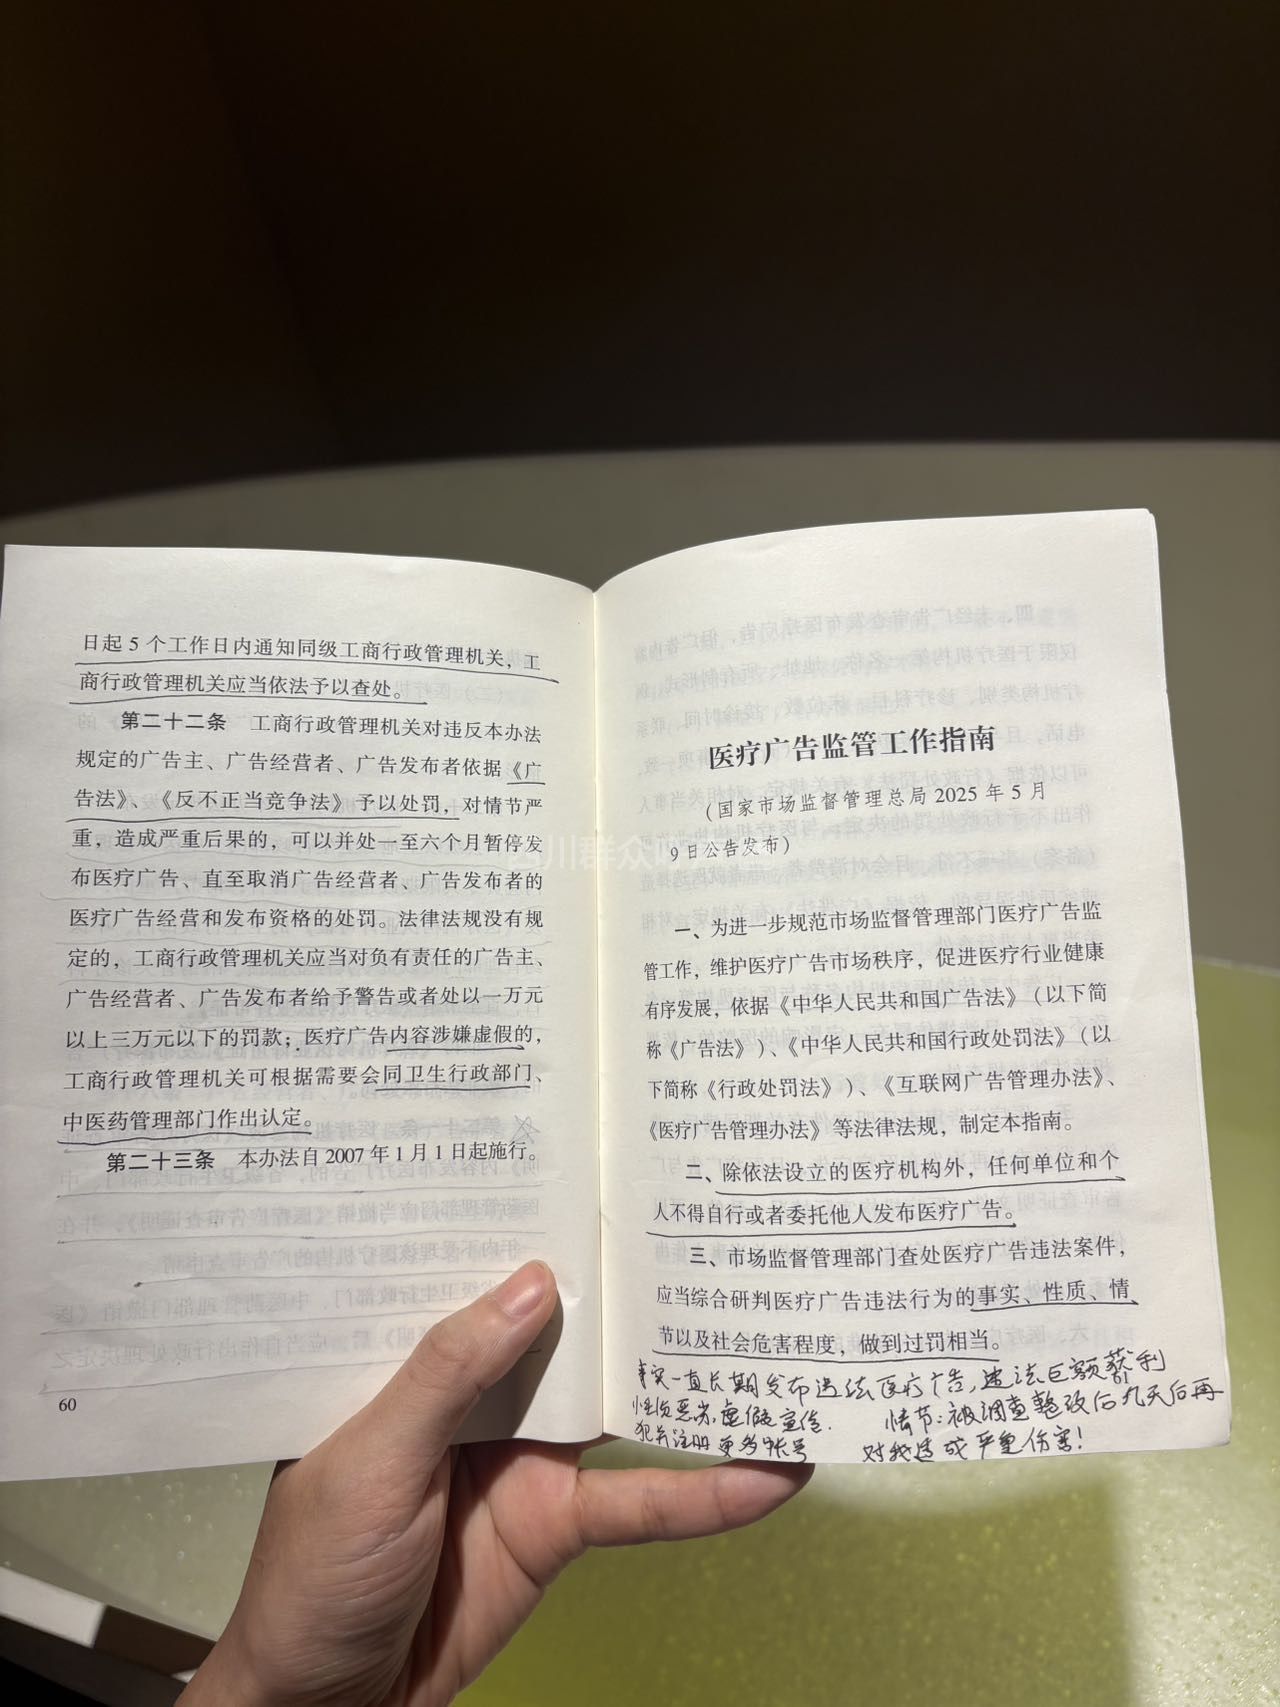 日起5个工作日内通知同级工商行政管理机关，工
商行政管理机关应当依法予以查处。
第二十二条 工商行政管理机关对违反本办法
规定的广告主、广告经营者、广告发布者依据《广
告法》、《反不正当竞争法》予以处罚，对情节严
重，造成严重后果的，可以并处一至六个月暂停发
布医疗广告、直至取消广告经营者、广告发布者的
医疗广告经营和发布资格的处罚。法律法规没有规
定的，工商行政管理机关应当对负有责任的广告主、
广告经营者、广告发布者给予警告或者处以一万元
以上三万元以下的罚款；医疗广告内容涉嫌虚假的，
工商行政管理机关可根据需要会同卫生行政部门、
中医药管理部门作出认定。
第二十三条 本办法自2007年1月1日起施行。
60
医疗广告监管工作指南
（国家市场监督管理总局2025年5月
9日公告发布）
一、为进一步规范市场监督管理部门医疗广告监
管工作，维护医疗广告市场秩序，促进医疗行业健康
有序发展，依据《中华人民共和国广告法》（以下简
称《广告法》）、《中华人民共和国行政处罚法》（以
下简称《行政处罚法》）、《互联网广告管理办法》、
《医疗广告管理办法》等法律法规，制定本指南。
二、除依法设立的医疗机构外，任何单位和个
人不得自行或者委托他人发布医疗广告。
三、市场监督管理部门查处医疗广告违法案件，
应当综合研判医疗广告违法行为的事实、性质、情
节以及社会危害程度，做到过罚相当。
事实一直长期发布违法医疗广告，违法巨额获利
61
性质恶劣，虚假宣传. 情节：被调查整改后九天后再
犯并注册更多帐号 对我造成严重伤害！